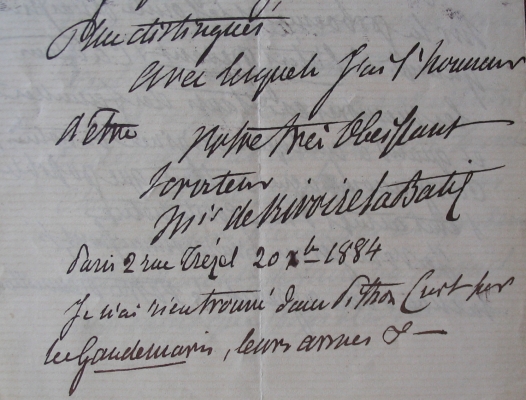 plus distingués
avec lesquels J'ai l'honneur
d'être votre très Obéissant
serviteur
Mis de Rivoire La Batie
Paris 2 rue Trézel 20 Xbre 1884
Je n'ai rien trouvé dans Pithon Curt sur
les Gaudemaris, leurs armes &